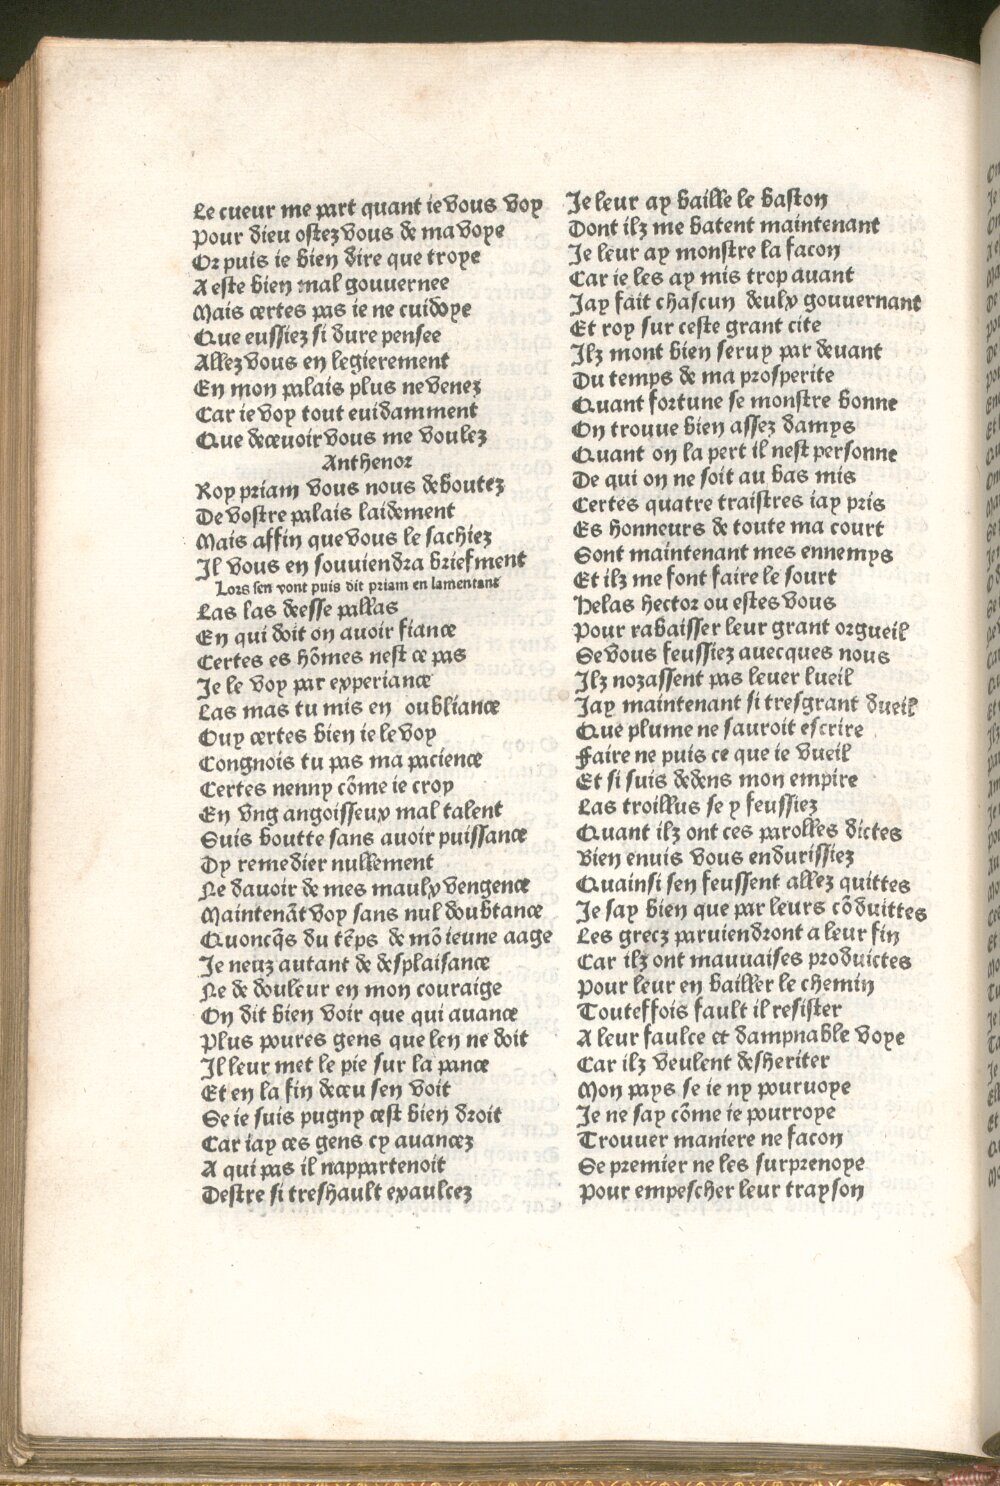 Le cueur me part quant ie vous voy
Pour dieu ostez vous de ma voye
Or puis ie bien dire que troye
A este bien mal gouuernee
Mais certes pas ie ne cuidoye
Que eussiez si dure pensee
Allez vous en legierement
En mon palais plus ne venez
Car ie voy tout euidamment
Que deceuoir vous me voulez
Anthenor
Roy priam vous nous deboutez
De vostre palais laidement
Mais affin que vous le sachiez
Il vous en souuiendra briefment
Lors sen vont puis dit priam en lamentant
Las las deesse pallas
En qui doit on auoir fiance
Certes es hõmes nest ce pas
Je le voy par experiance
Las mas tu mis en oubliance
Ouy certes bien ie le voy
Congnois tu pas ma pacience
Certes nenny cõme ie croy
En vng angoisseux mal talent
Suis boutte sans auoir puissance
Dy remedier nullement
Ne dauoir de mes maulx vengence
Maintenãt voy sans nul doubtance
Quoncq̃s du tẽps de mõ ieune aage
Je neuz autant de desplaisance
Ne de douleur en mon couraige
On dit bien voir que qui auance
Plus poures gens que len ne doit
Il leur met le pie sur la pance
Et en la fin deceu sen voit
Se ie suis pugny cest bien droit
Car iay ces gens cy auancez
A qui pas il nappartenoit
Destre si treshault exaulcez
Je leur ay baille le baston
Dont ilz me batent maintenant
Je leur ay monstre la facon
Car ie les ay mis trop auant
Jay fait chascun deulx gouuernant
Et roy sur ceste grant cite
Ilz mont bien seruy par deuant
Du temps de ma prosperite
Quant fortune se monstre bonne
On trouue bien assez damys
Quant on la pert il nest personne
De qui on ne soit au bas mis
Certes quatre traistres iay pris
Es honneurs de toute ma court
Sont maintenant mes ennemys
Et ilz me font faire le sourt
Helas hector ou estes vous
Pour rabaisser leur grant orgueil
Se vous feussiez auecques nous
Ilz nozassent pas leuer lueil
Jay maintenant si tresgrant dueil
Que plume ne sauroit escrire
Faire ne puis ce que ie vueil
Et si suis dedens mon empire
Las troillus se y feussiez
Quant ilz ont ces parolles dictes
Bien enuis vous endurissiez
Quainsi sen feussent allez quittes
Je say bien que par leurs cõduittes
Les grecz paruiendront a leur fin
Car ilz ont mauuaises produictes
Pour leur en bailler le chemin
Touteffois fault il resister
A leur faulce et dampnable voye
Car ilz veulent desheriter
Mon pays se ie ny pouruoye
Je ne say cõme ie pourroye
Trouuer maniere ne facon
Se premier ne les surprenoye
Pour empescher leur trayson